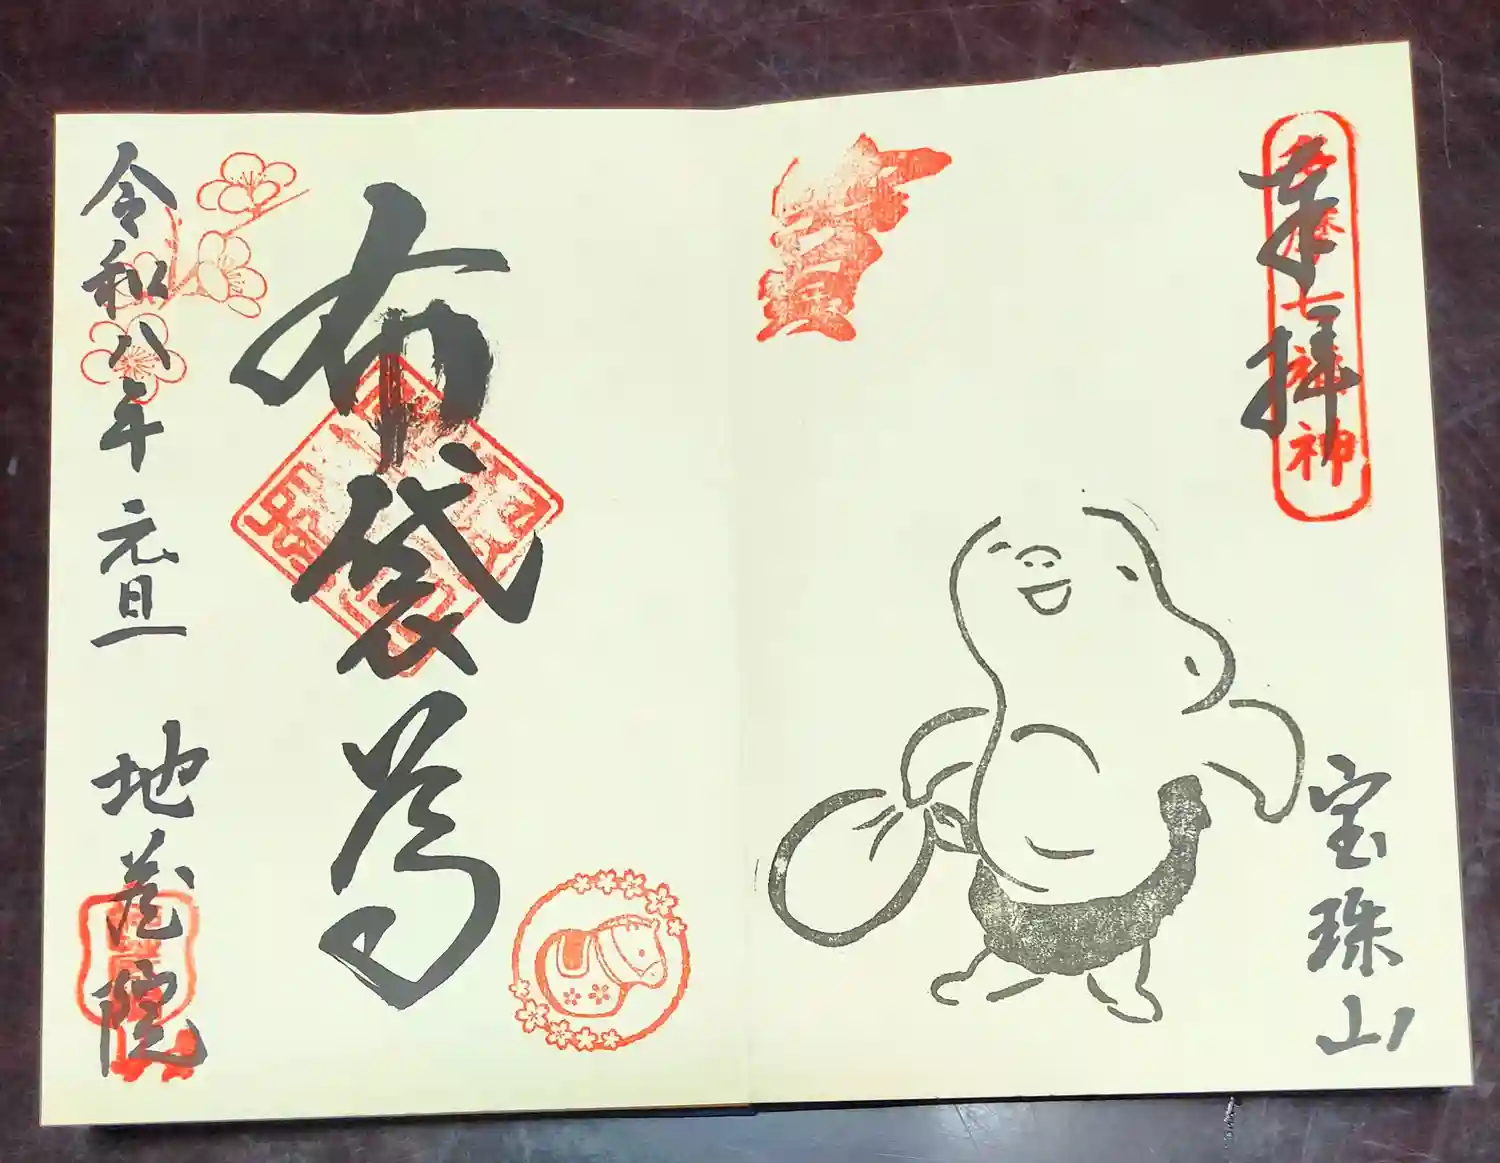 奉拝
七福神
寶
宝珠山
布袋尊
令和八年 元旦 地蔵院